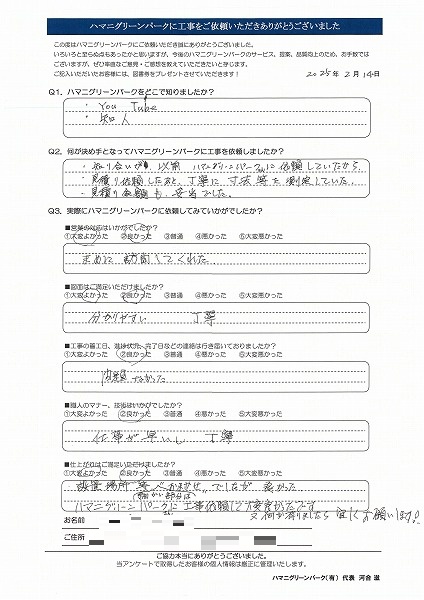 ハマニグリーンパークに工事をご依頼いただきありがとうございました
この度はハマニグリーンパークにご依頼いただき誠にありがとうございました。
いろいろと至らぬ点もあったかと思いますが、今後のハマニグリーンパークのサービス、提案、品質向上のため、お手数では
ございますが、ぜひ率直なご意見・ご感想を教えていただきたいと存じます。
ご記入いただいたお客様には、図書券をプレゼントさせていただきます!
2025年 2月 14日
Q1. ハマニグリーンパークをどこで知りましたか?
・You Tube
・知人
Q2. 何が決め手となってハマニグリーンパークに工事を依頼しましたか?
・知り合いが 以前 ハマニグリーンパークさんに依頼していたから
・見積り依頼したあと、丁寧に寸法等を測定していた。
・見積り金額も、妥当でした。
Q3. 実際にハマニグリーンパークに依頼してみていかがでしたか?
■営業の対応はいかがでしたか?
①大変よかった ②良かった ③普通 ④悪かった ⑤大変悪かった
まめに 訪問してくれた
■図面はご満足いただけましたか?
①大変よかった ②良かった ③普通 ④悪かった ⑤大変悪かった
分かりやすい 丁寧
■工事の着工日、進捗状況、完了日などの連絡は行き届いておりましたか?
①大変よかった ②良かった ③普通 ④悪かった ⑤大変悪かった
問題 なかった
■職人のマナー、技術はいかがでしたか?
①大変よかった ②良かった ③普通 ④悪かった ⑤大変悪かった
仕事が早いし 丁寧
■仕上がりはご満足いただけましたか?
①大変よかった ②良かった ③普通 ④悪かった ⑤大変悪かった
設置場所等 "おまかせ" でしたが 良かった
(細かい部分は)
ハマニグリーンパークさんに工事依頼して大変良かったです
又何か有りましたら宜しくお願いします!
お名前
ご住所
ご協力本当にありがとうございました。
当アンケートで取得したお客様の個人情報は厳正に管理いたします。
ハマニグリーンパーク(有) 代表 河合 滋